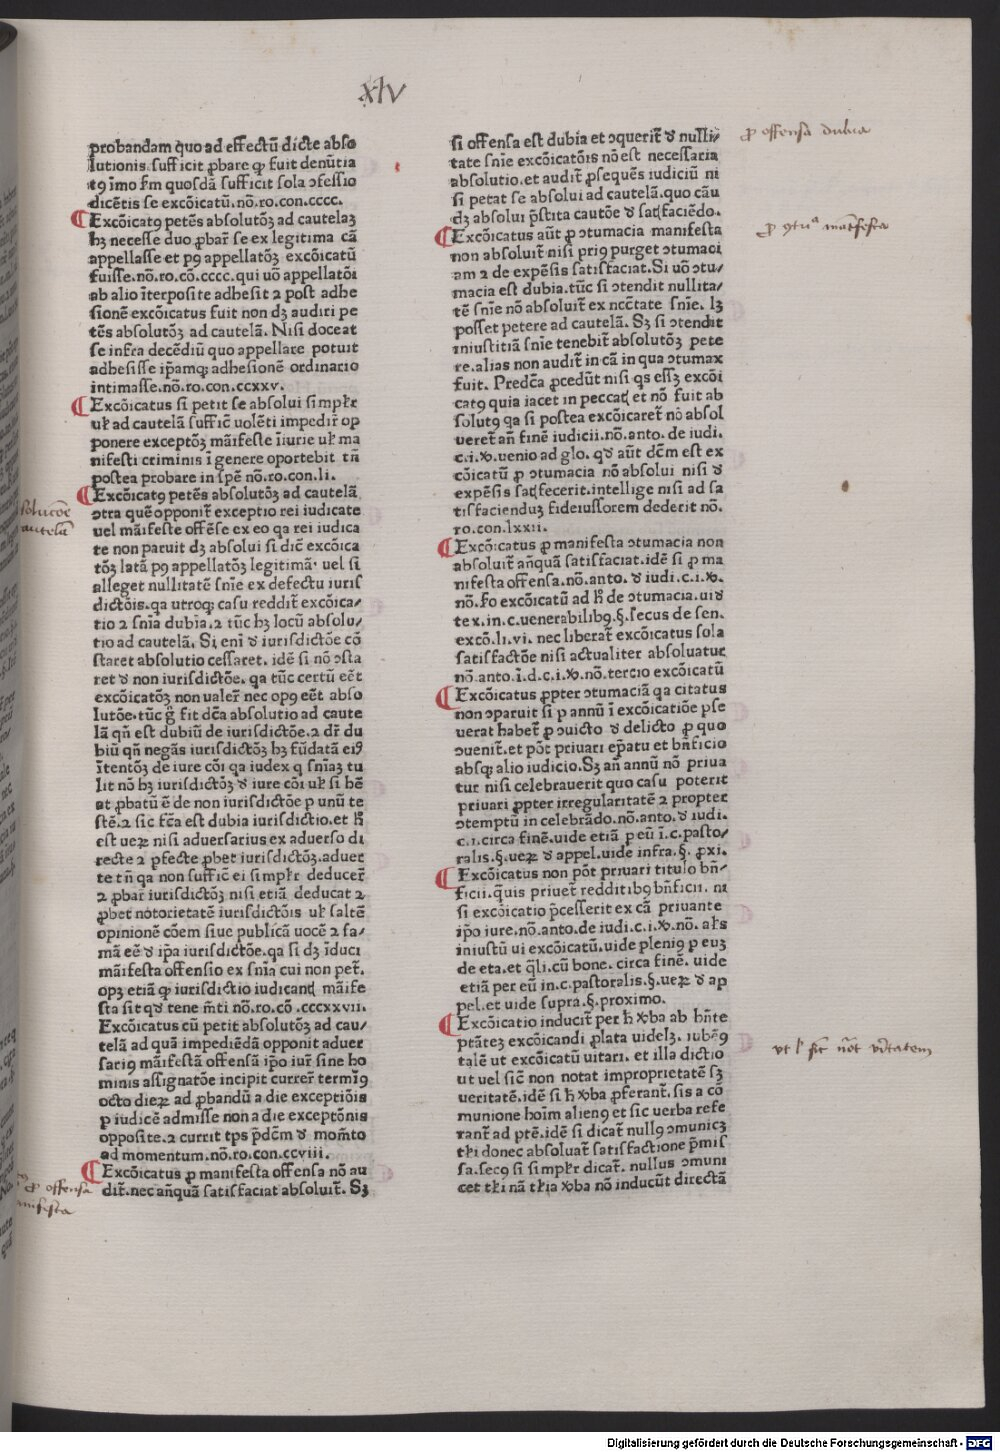 xlv
probandam quo ad effectū dicte abso
lutionis sufficit ꝓbare ꝙ fuit denūtia
tꝯ īmo ẜm quosdā sufficit sola ↄfessio
dicētis se excōicatū.nō.ro.con.cccc.
Excōicatꝯ petēs absolutōꝫ ad cautelaꝫ
hꝫ necesse duo ꝓbar̄ se ex legitima cā
appellasse et pꝯ appellatōꝫ excōicatū
fuisse.nō.ro.cō.cccc.qui uō appellatōi
ab alio īterposite adhesit ⁊ post adhe
sionē excōicatus fuit non dꝫ audiri pe
tēs absolutōꝫ ad cautelā. Nisi doceat
se infra decēdiū quo appellare potuit
adhesisse ip̄amqꝫ adhesionē ordinario
intimasse.nō.ro.con.ccxxv.
Excōicatus si petit se absolui simpl̄r
ul̄ ad cautelā suffic̄ uolēti impedir̄ op
ponere exceptōꝫ māifeste īiurie ul̄ ma
nifesti criminis ī genere oportebit tn̄
postea probare in spē nō.ro.con.li.
Excōicatꝯ petēs absolutōꝫ ad cautelā
ↄtra quē opponit̄ exceptio rei iudicate
uel māifeste offēse ex eo qa rei iudica
te non paruit dꝫ absolui si dic̄ excōica
tōꝫ latā pꝯ appellatōꝫ legitimā uel si
alleget nullitatē sn̄ie ex defectu iuris
dictōis.qa utroqꝫ casu reddit̄ excōica/
tio ⁊ sn̄ia dubia.⁊ tūc hꝫ locū absolu/
tio ad cautelā. Si enī ꝺ iurisdictōe cō
staret absolutio cessaret. idē si nō ↄsta
ret ꝺ non iurisdictōe. qa tūc certū eēt
excōicatōꝫ non ualer̄ nec opꝯ eēt abso
lutōe.tūc g̅ fit dc̄a absolutio ad caute
lā qn̄ est dubiū de iurisdictōe.⁊ dr̄ du
biū qn̄ negās iurisdictōꝫ hꝫ fūdatā eiꝯ
ītentōꝫ de iure cōi qa iudex q sn̄iaꝫ tu
lit nō hꝫ iurisdictōꝫ ꝺ iure cōi ul̄ si hē
at ꝓbatū ē de non iurisdictōe p unū te
stē.⁊ sic fc̄a est dubia iurisdictio.et h̄
est ueꝝ nisi aduersarius ex aduerso di
recte ⁊ ꝑfecte ꝓbet iurisdictōꝫ.aduer
te tn̄ qa non suffic̄ ei simpl̄r deducer̄
⁊ ꝓbar̄ iurisdictōꝫ nisi etiā deducat ⁊
ꝓbet notorietatē iurisdictōis ul̄ saltē
opinionē cōem siue publicā uocē ⁊ fa/
mā eē ꝺ ip̄a iurisdictōe.qa si dꝫ īduci
māifesta offensio ex sn̄ia cui non pet̄.
opꝫ etiā ꝙ iurisdictio iudicantꝭ māife
sta sit qꝺ tene m̄ti nō.ro.cō .cccxxvii.
Excōicatus cū petit absolutōꝫ ad cau/
telā ad quā impediēdā opponit aduer
sariꝯ māifestā offensā ip̄o iur̄ sine ho
minis assignatōe incipit currer̄ termīꝯ
octo dieꝝ ad ꝓbandū a die exceptiōis
p iudicē admisse non a die exceptōnis
opposite.⁊ currit tps p̄dc̄m ꝺ mom̄to
ad momentum.nō.ro.con.ccviii.
Excōicatus ꝓ manifesta offensa nō au
dit̄.nec an̄quā satisfaciat absoluit̄. Sꝫ
si offensa est dubia et ↄquerit̄ ꝺ nulli/
tate sn̄ie excōicatōis nō est necessaria
absolutio.et audit̄ ꝓsequēs iudiciū ni
si petat se absolui ad cautelā.quo cāu
dꝫ absolui p̄stita cautōe ꝺ satꝭfaciēdo.
Excōicatus aūt ꝓ ↄtumacia manifesta
non absoluit̄ nisi priꝯ purget ↄtumaci
am ⁊ de expēsis satisfaciat.Si uō ↄtu/
macia est dubia.tūc si ↄtendit nullita/
tē sn̄ie nō absoluit̄ ex ncc̄tate sn̄ie. lꝫ
posset petere ad cautelā. Sꝫ si ↄtendit
iniustitiā sn̄ie tenebit̄ absolutōꝫ pete
re.alias non audit̄ in cā in qua ↄtumax
fuit. Predc̄a ꝓcedūt nisi qs essꝫ excōi
catꝯ quia iacet in peccatꝭ et nō fuit ab
solutꝯ qa si postea excōicaret̄ nō absol
ueret̄ an̄ finē iudicii.nō.anto. de iudi.
c.i.ꝟ.uenio ad glo. qꝺ aūt dc̄m est ex
cōicatū ꝓ ↄtumacia nō absolui nisi ꝺ
expēsis satꝭfecerit.intellige nisi ad sa
tisfacienduꝫ fideiussorem dederit nō.
ro.con.lxxii.
Excōicatus ꝓ manifesta ↄtumacia non
absoluit̄ an̄quā satisfaciat.idē si ꝓ ma
nifesta offensa.nō.anto. ꝺ iudi.c.i.ꝟ.
nō.fo excōicatū ad h̄ de ↄtumacia.uiꝺ
tex.in.c.uenerabilibꝯ.§.secus de sen.
excō.li.vi. nec liberat̄ excōicatus sola
satisfactōe nisi actualiter absoluatur
nō.anto.ī.d.c.i.ꝟ.nō.tercio excōicatū
Excōicatus ꝓpter ↄtumaciā qa citatus
non ↄparuit si p annū ī excōicatiōe pse
uerat habet̄ ꝓ ↄuicto ꝺ delicto ꝓ quo
ↄuenit̄.et pōt priuari ep̄atu et bn̄ficio
absqꝫ alio iudicio.Sꝫ an̄ annū nō priua
tur nisi celebrauerit quo casu poterit
priuari ꝓpter irregularitatē ⁊ propter
ↄtemptū in celebrādo.nō.anto.ꝺ iudi.
c.i.circa finē.uide etiā p eū ī.c.pasto/
ralis.§.ueꝝ ꝺ appel.uide infra.§. ꝓxi.
Excōicatus non pōt priuari titulo bn̄/
ficii.quis priuet̄ redditibꝯ bn̄ficii. ni
si excōicatio p̄cesserit ex cā priuante
ip̄o iure.nō.anto.de iudi.c.i.ꝟ.nō. al̄s
iniustū ui excōicatū.uide pleniꝯ p euꝫ
de eta.et q̄li.cū bone. circa finē. uide
etiā per eū in.c.pastoralis.§.ueꝝ ꝺ ap
pel.et uide supra.§.proximo.
Excōicatio inducit̄ per h̄ ꝟba ab hn̄te
ptātēꝫ excōicandi ꝓlata uidelꝫ. iubēꝯ
talē ut excōicatū uitari. et illa dictio
ut uel sic̄ non notat improprietatē sꝫ
ueritatē.idē si h̄ ꝟba ꝓferant̄.sis a cō
munione hoīm alienꝯ et sic uerba refe
rant̄ ad ptē.idē si dicat̄ nullꝯ ↄmunicꝫ
tl̄i donec absoluat̄ satisfactione p̄mis
sa.secꝯ si simpl̄r dicat̄. nullus ↄmuni
cet tl̄i nā tl̄ia ꝟba nō inducūt directā
ꝓ offensa dubia
ꝓ ꝯtuᵃ manifesta
ut l̄ sic̄ nōt v̄itatem
ꝓ offensa
Digitalisierung gefördert durch die Deutsche Forschungsgemeinschaft - DFG